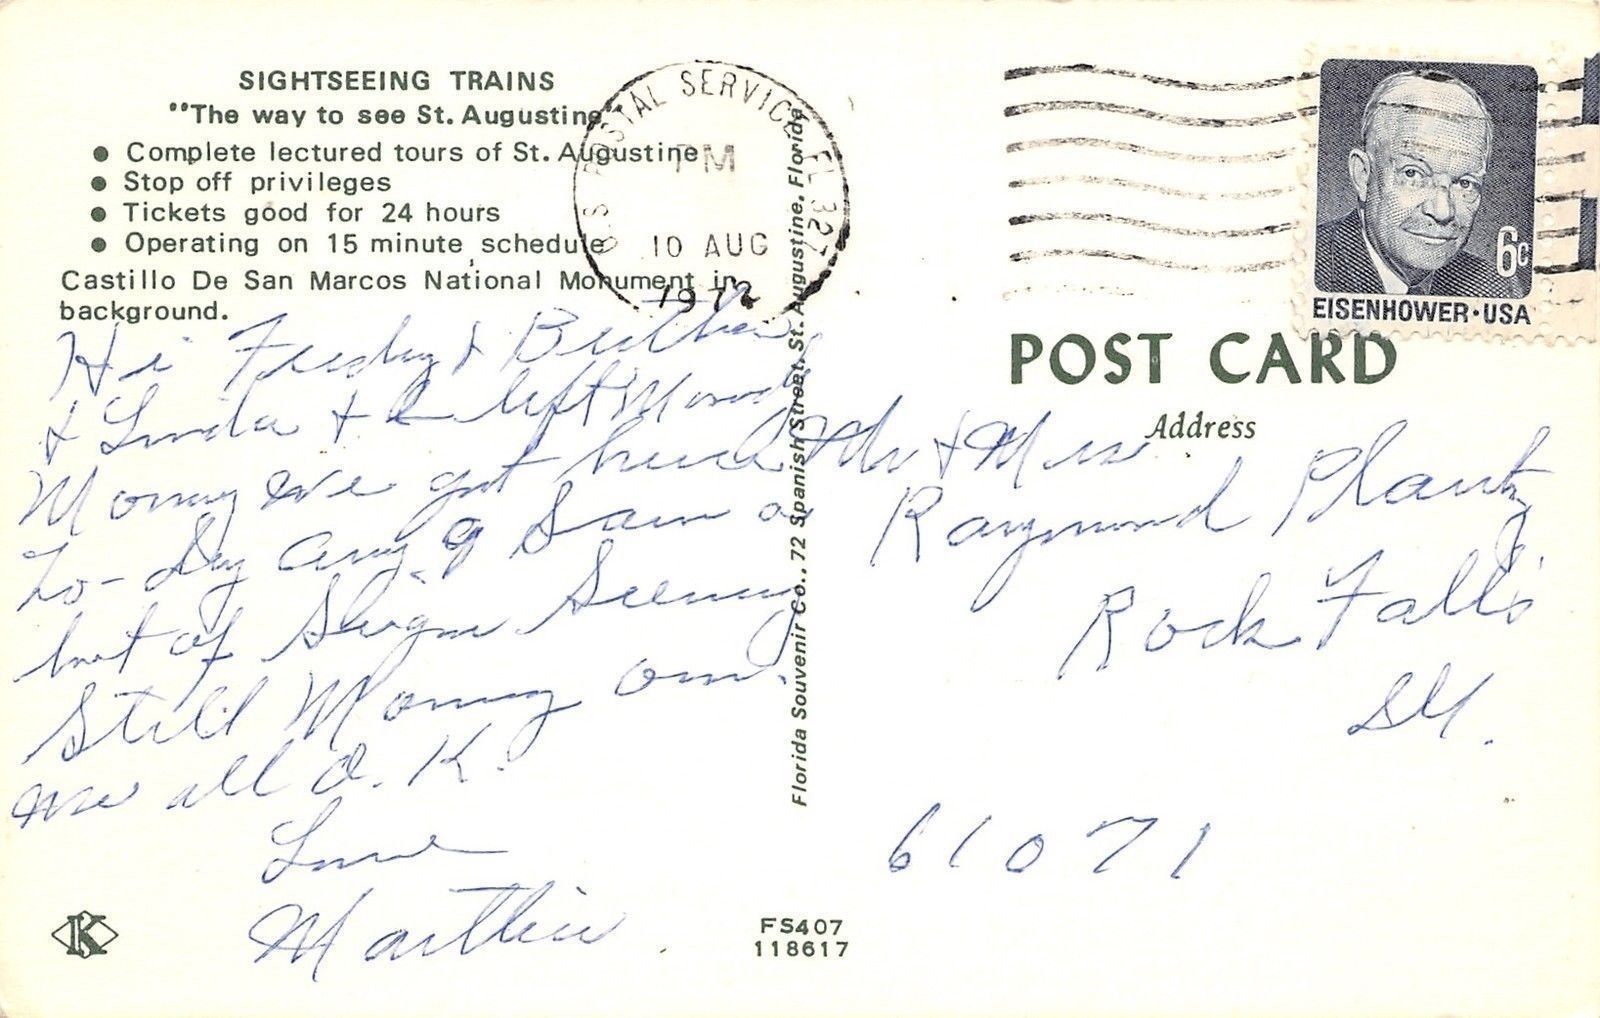 SIGHTSEEING TRAINS
"The way to see St. Augustine"
● Complete lectured tours of St. Augustine
● Stop off privileges
● Tickets good for 24 hours
● Operating on 15 minute schedule
Castillo De San Marcos National Monument in
background.
Hi &
& Linda & left
we got
to-Day
but of
Still
we all O.K.
Love
U.S. POSTAL SERVICE FL 327
PM
10 AUG
1972
Florida Souvenir Co., 72 Spanish Street, St. Augustine, Florida
6c
EISENHOWER·USA
POST CARD
Address
Mr & Mrs
Raymond Plantz
Rock Falls
Ill.
61071
K
FS407
118617